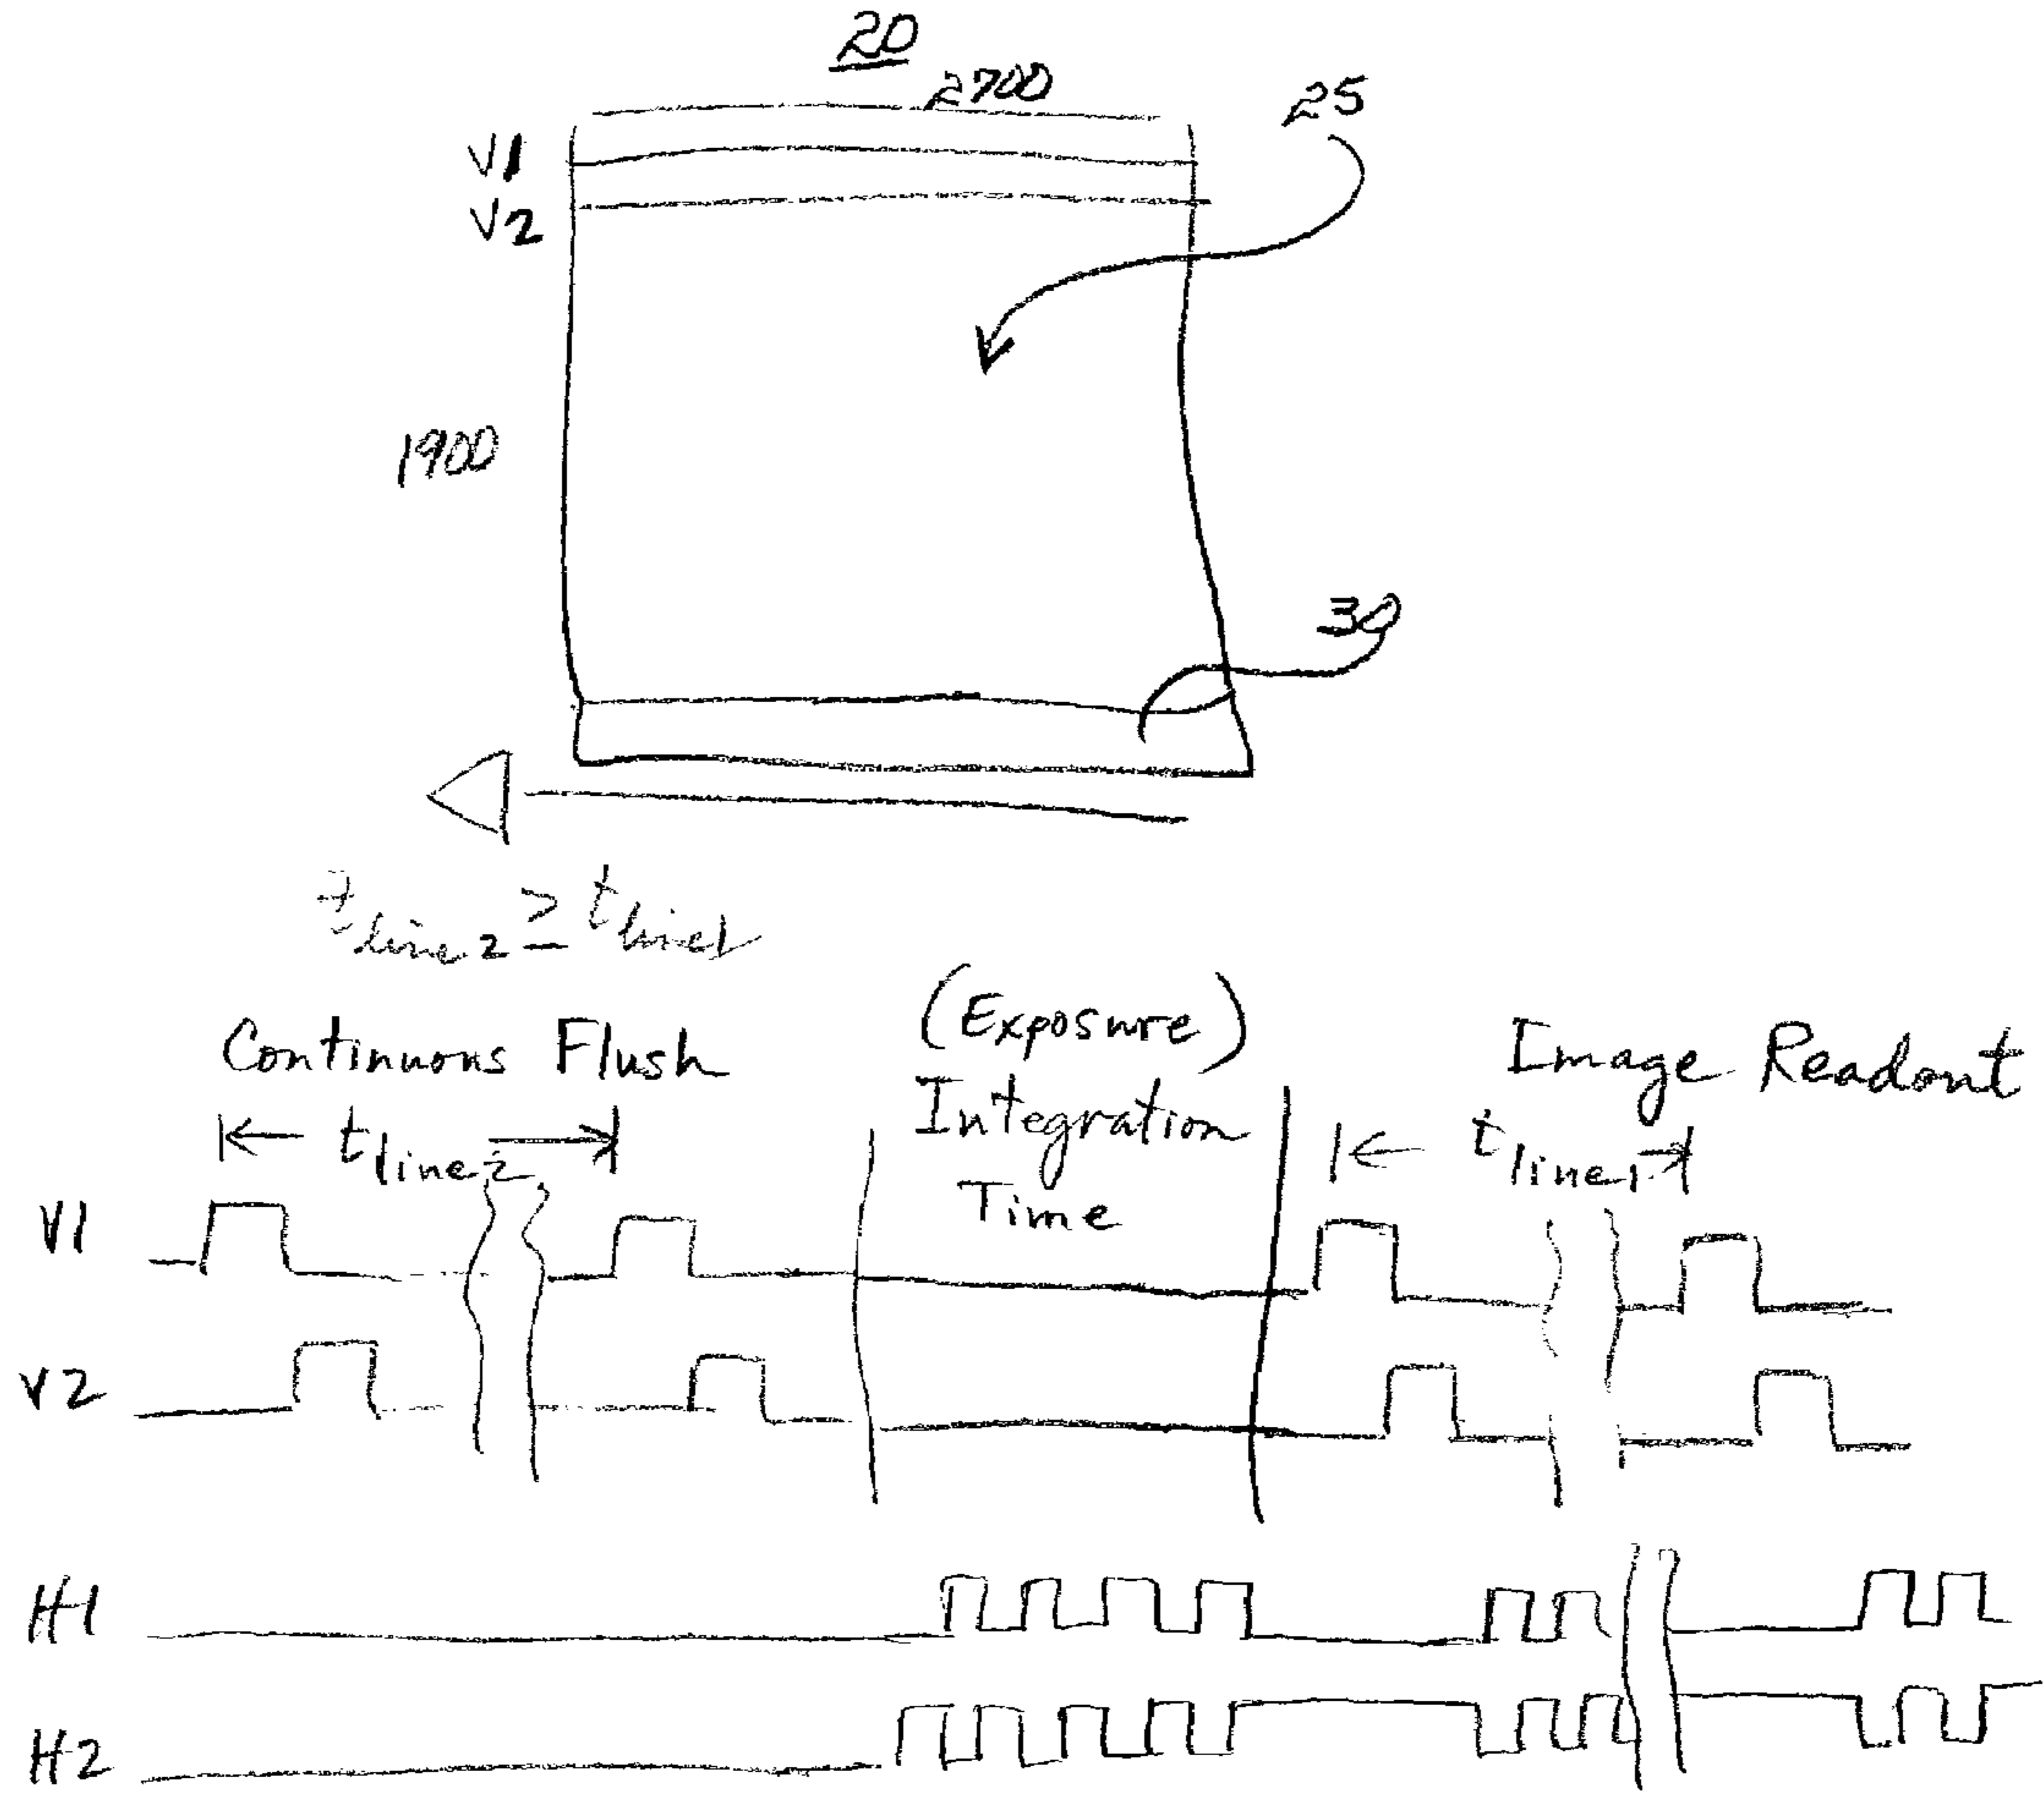 20
2700
25
V1
V2
1900
30
t line 2 ≥ t line 1
(Exposure)
Continuous Flush
Integration
Time
Image Readout
t line 2
t line 1
V1
V2
H1
H2